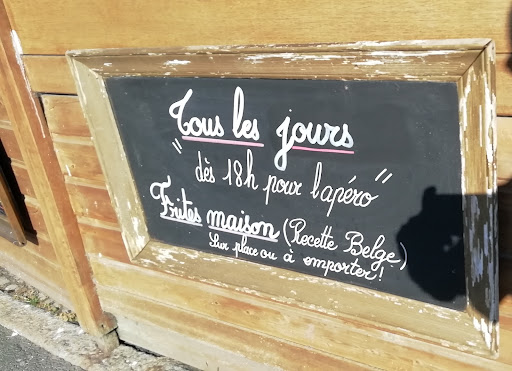 Tous les jours
"dès 18h pour l'apéro"
Frites maison (Recette Belge)
Sur place ou à emporter!